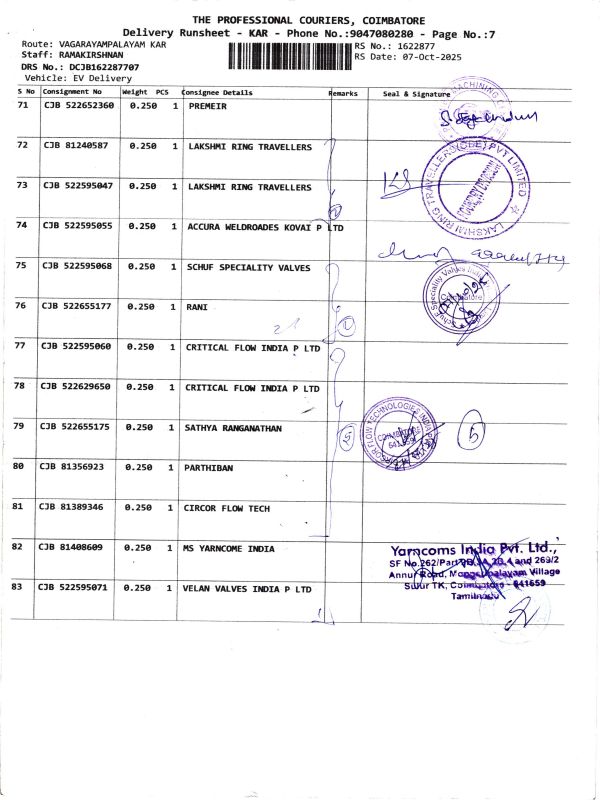 THE PROFESSIONAL COURIERS, COIMBATORE
Delivery Runsheet - KAR - Phone No.:9047080280 - Page No.:7
Route: VAGARAYAMPALAYAM KAR
RS No.: 1622877
Staff: RAMAKIRSHNAN
RS Date: 07-Oct-2025
DRS No.: DCJB162287707
Vehicle: EV Delivery
S No Consignment No Weight PCS Consignee Details Remarks Seal & Signature
71 CJB 522652360 0.250 1 PREMEIR
72 CJB 81240587 0.250 1 LAKSHMI RING TRAVELLERS
73 CJB 522595047 0.250 1 LAKSHMI RING TRAVELLERS
74 CJB 522595055 0.250 1 ACCURA WELDROADES KOVAI P LTD
75 CJB 522595068 0.250 1 SCHUF SPECIALITY VALVES
76 CJB 522655177 0.250 1 RANI
77 CJB 522595060 0.250 1 CRITICAL FLOW INDIA P LTD
78 CJB 522629650 0.250 1 CRITICAL FLOW INDIA P LTD
79 CJB 522655175 0.250 1 SATHYA RANGANATHAN
80 CJB 81356923 0.250 1 PARTHIBAN
81 CJB 81389346 0.250 1 CIRCOR FLOW TECH
82 CJB 81408609 0.250 1 MS YARNCOME INDIA
83 CJB 522595071 0.250 1 VELAN VALVES INDIA P LTD
LAKSHMI RING TRAVELLERS (CBE) PVT LIMITED
Schuf Speciality Valves India
Coimbatore
FLOW TECHNOLOGIES INDIA
COIMBATORE
5
Yarncoms India Pvt. Ltd.,
SF No.262/Part and 269/2
Annur Road, Village
Sulur TK, Coimbatore - 641659
Tamilnadu